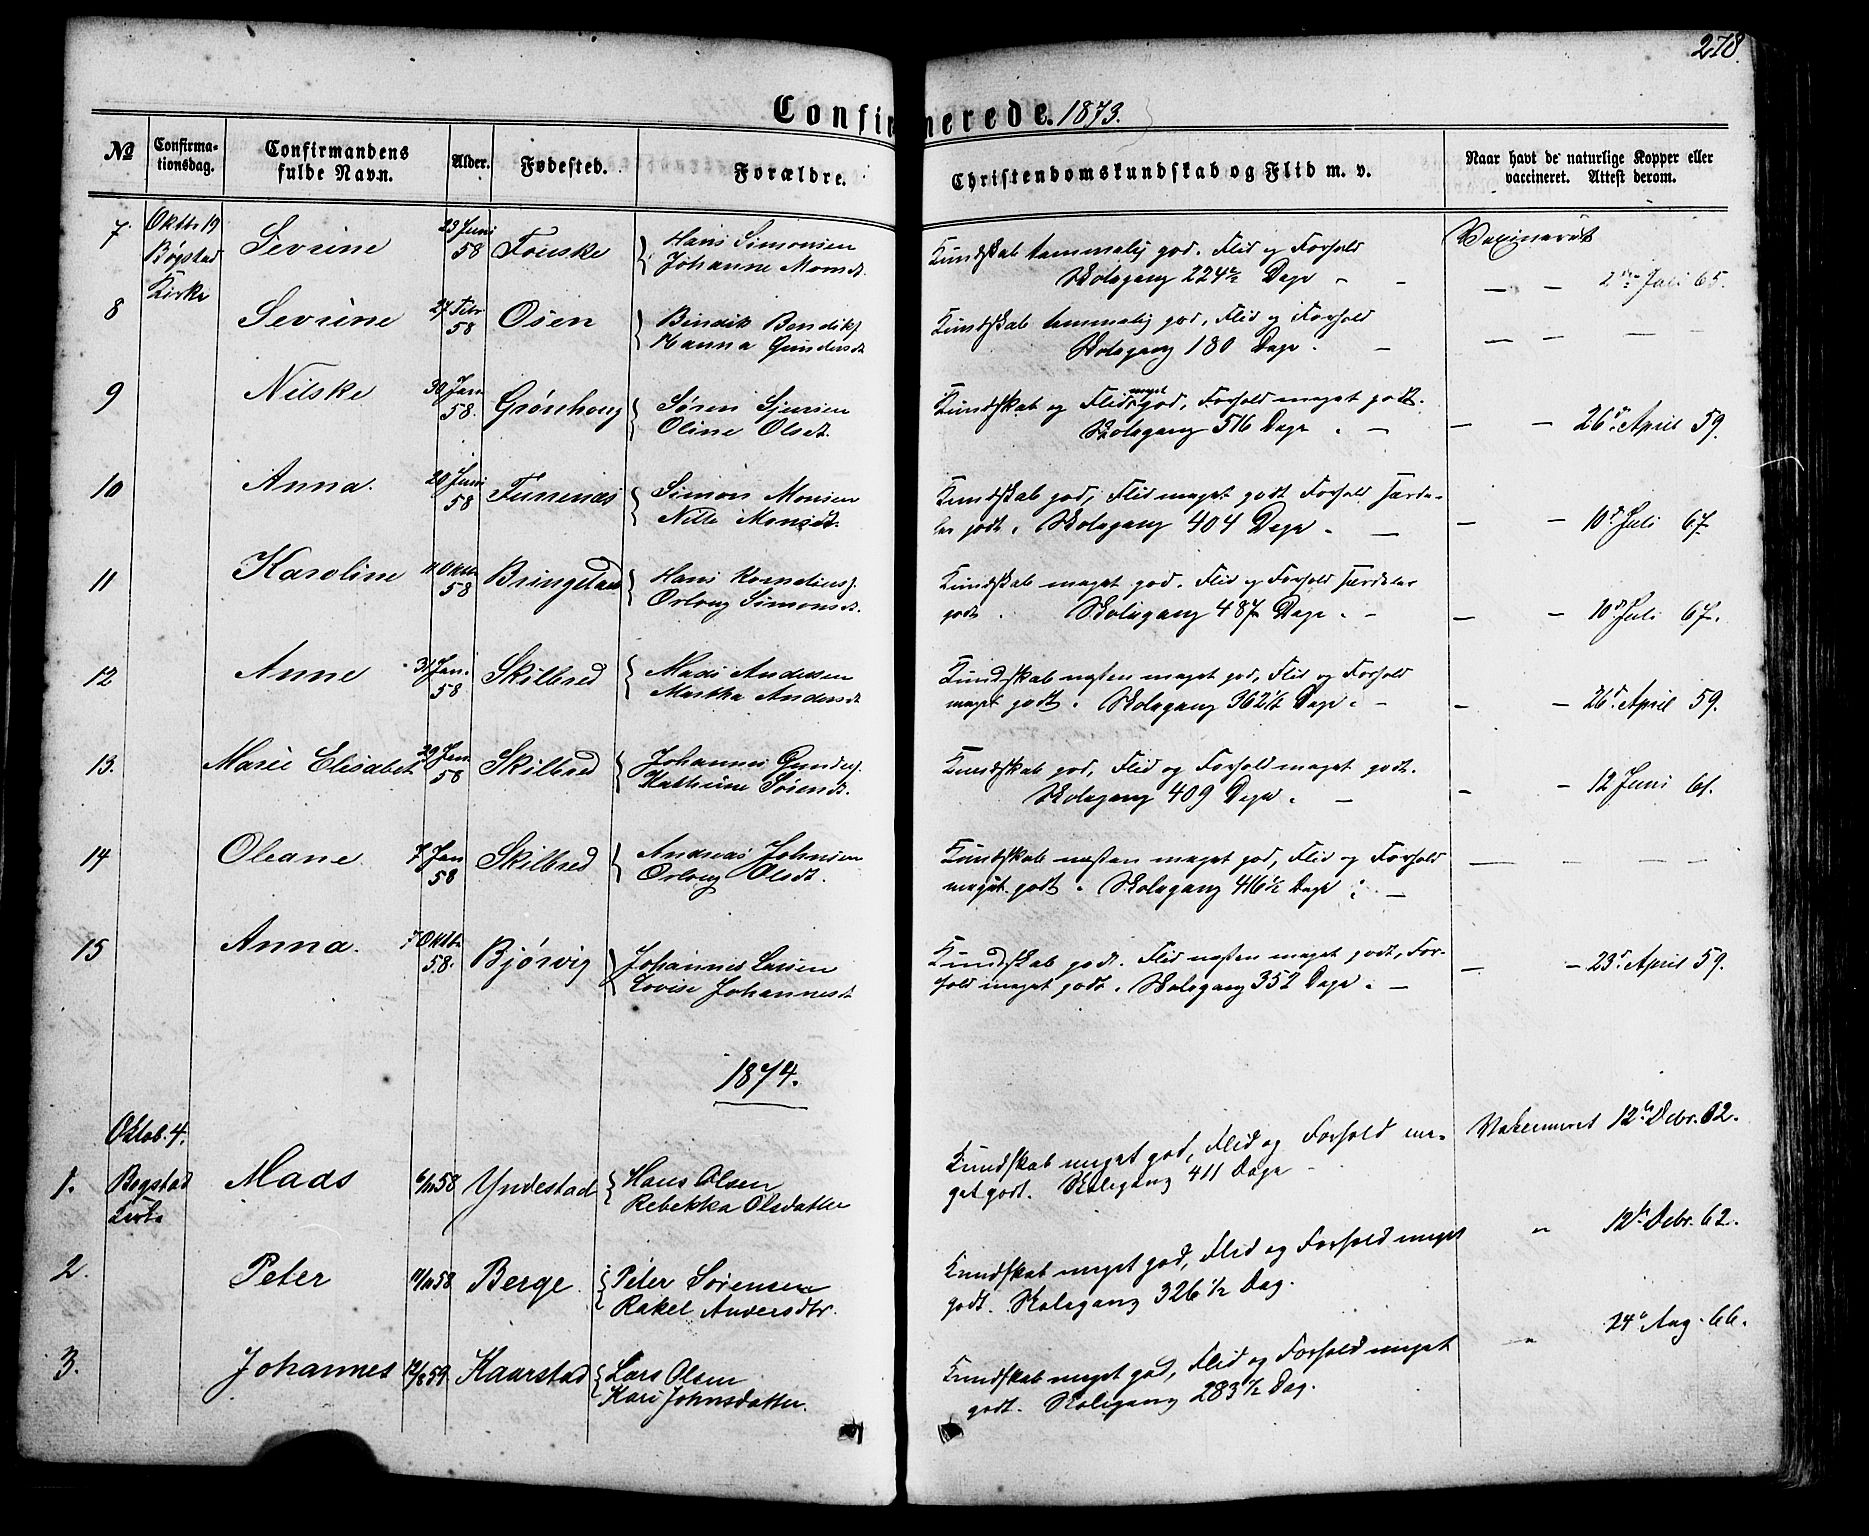 278.
Confirmerede. 1873.
No Confirmationsdag. Confirmandens fulde Navn. Alder. Fødested. Forældre. Christendomskundskab og Flid m. v. Naar havt de naturlige Kopper eller vaccineret. Attest derom.
7 Oktbr 19 Bøgstad Kirke Sevrine 23 Juni 58 Fouske Hans Simonsen
Johanne Monsdt.
Kundskab temmelig god. Flid og Forhold
Skolegang 224½ Dage " - Vaxineret - - Juli 65.
8 Sevrine 27 Febr 58 Osen Bendik Bendiks.
Hanna Gundersdt
Kundskab temmelig god, Flid og Forhold
Skolegang 180 Dage. - - - -
9 Nilske 30 Jan 58. Grønhoug Søren Sjursen
Oline Olsdt.
Kundskab og Flid meget god, Forhold meget godt.
Skolegang 516 Dage. - - - 26de April 59.
10 Anna. 20 Juni 58 Funenæs Simon Monsen
Nille Monsdt.
Kundskab god, Flid meget godt Forhold særde-
les godt. Skolegang 404 Dage. - - - 10de Juli 67
11 Karoline 11 Oktbr 58 Bringeland Hans Korneliusf.
Orloug Simonsdt.
Kundskab meget god. Flid og Forhold særdeles
godt. Skolegang 487 Dage. - - - 10de Juli 67.
12 Anne 31 Jan. 58 Skilbred Mads Andersen
Martha Andersdt
Kundskab næsten meget god, Flid og Forhold
meget godt. Skolegang 362½ Dage. - - - 26de April 59.
13. Marie Elisabet 29 Jan. 58 Skilbred Johannes Gunders.
Kathrine Sørensdt.
Kundskab god, Flid og Forhold meget godt.
Skolegang 409 Dage. - - - 12 Juni 61.
14 Oleane 7 Jan 58 Skilbred Andreas Johnsen
Orloug Olsdt.
Kundskab næsten meget god, Flid og Forhold
meget godt. Skolegang 416½ Dage. - - - - -
15 Anna. 7 Oktbr. 58. Bjørvig Johannes Larsen
Lovise Johannesdt
Kundskab godt. Flid næsten meget godt, For-
hold meget godt. Skolegang 352 Dage. - - - 23de April 59.
1874.
1. Oktob. 4. Bogstad Kirke Mads 58 Yndestad Hans Olsen
Rebekka Olsdatter
Kundskab meget god, Flid og Forhold me-
get godt. Skolegang 411 Dage Vakcineret 12te Debr. 62.
2. Peter 58 Berge Peter Sørensen
Rakel Andersdtr.
Kundskab meget god, Flid og Forhold meget
godt. Skolegang 326 ½ Dag. " 12te Debr. 62.
3. Johannes 59 Kaarstad Lars Olsen
Kari Johnsdatter.
Kundskab meget god, Flid og Forhold meget
godt. Skolegang 283 ½ Dag. " 24de Aug. 66.